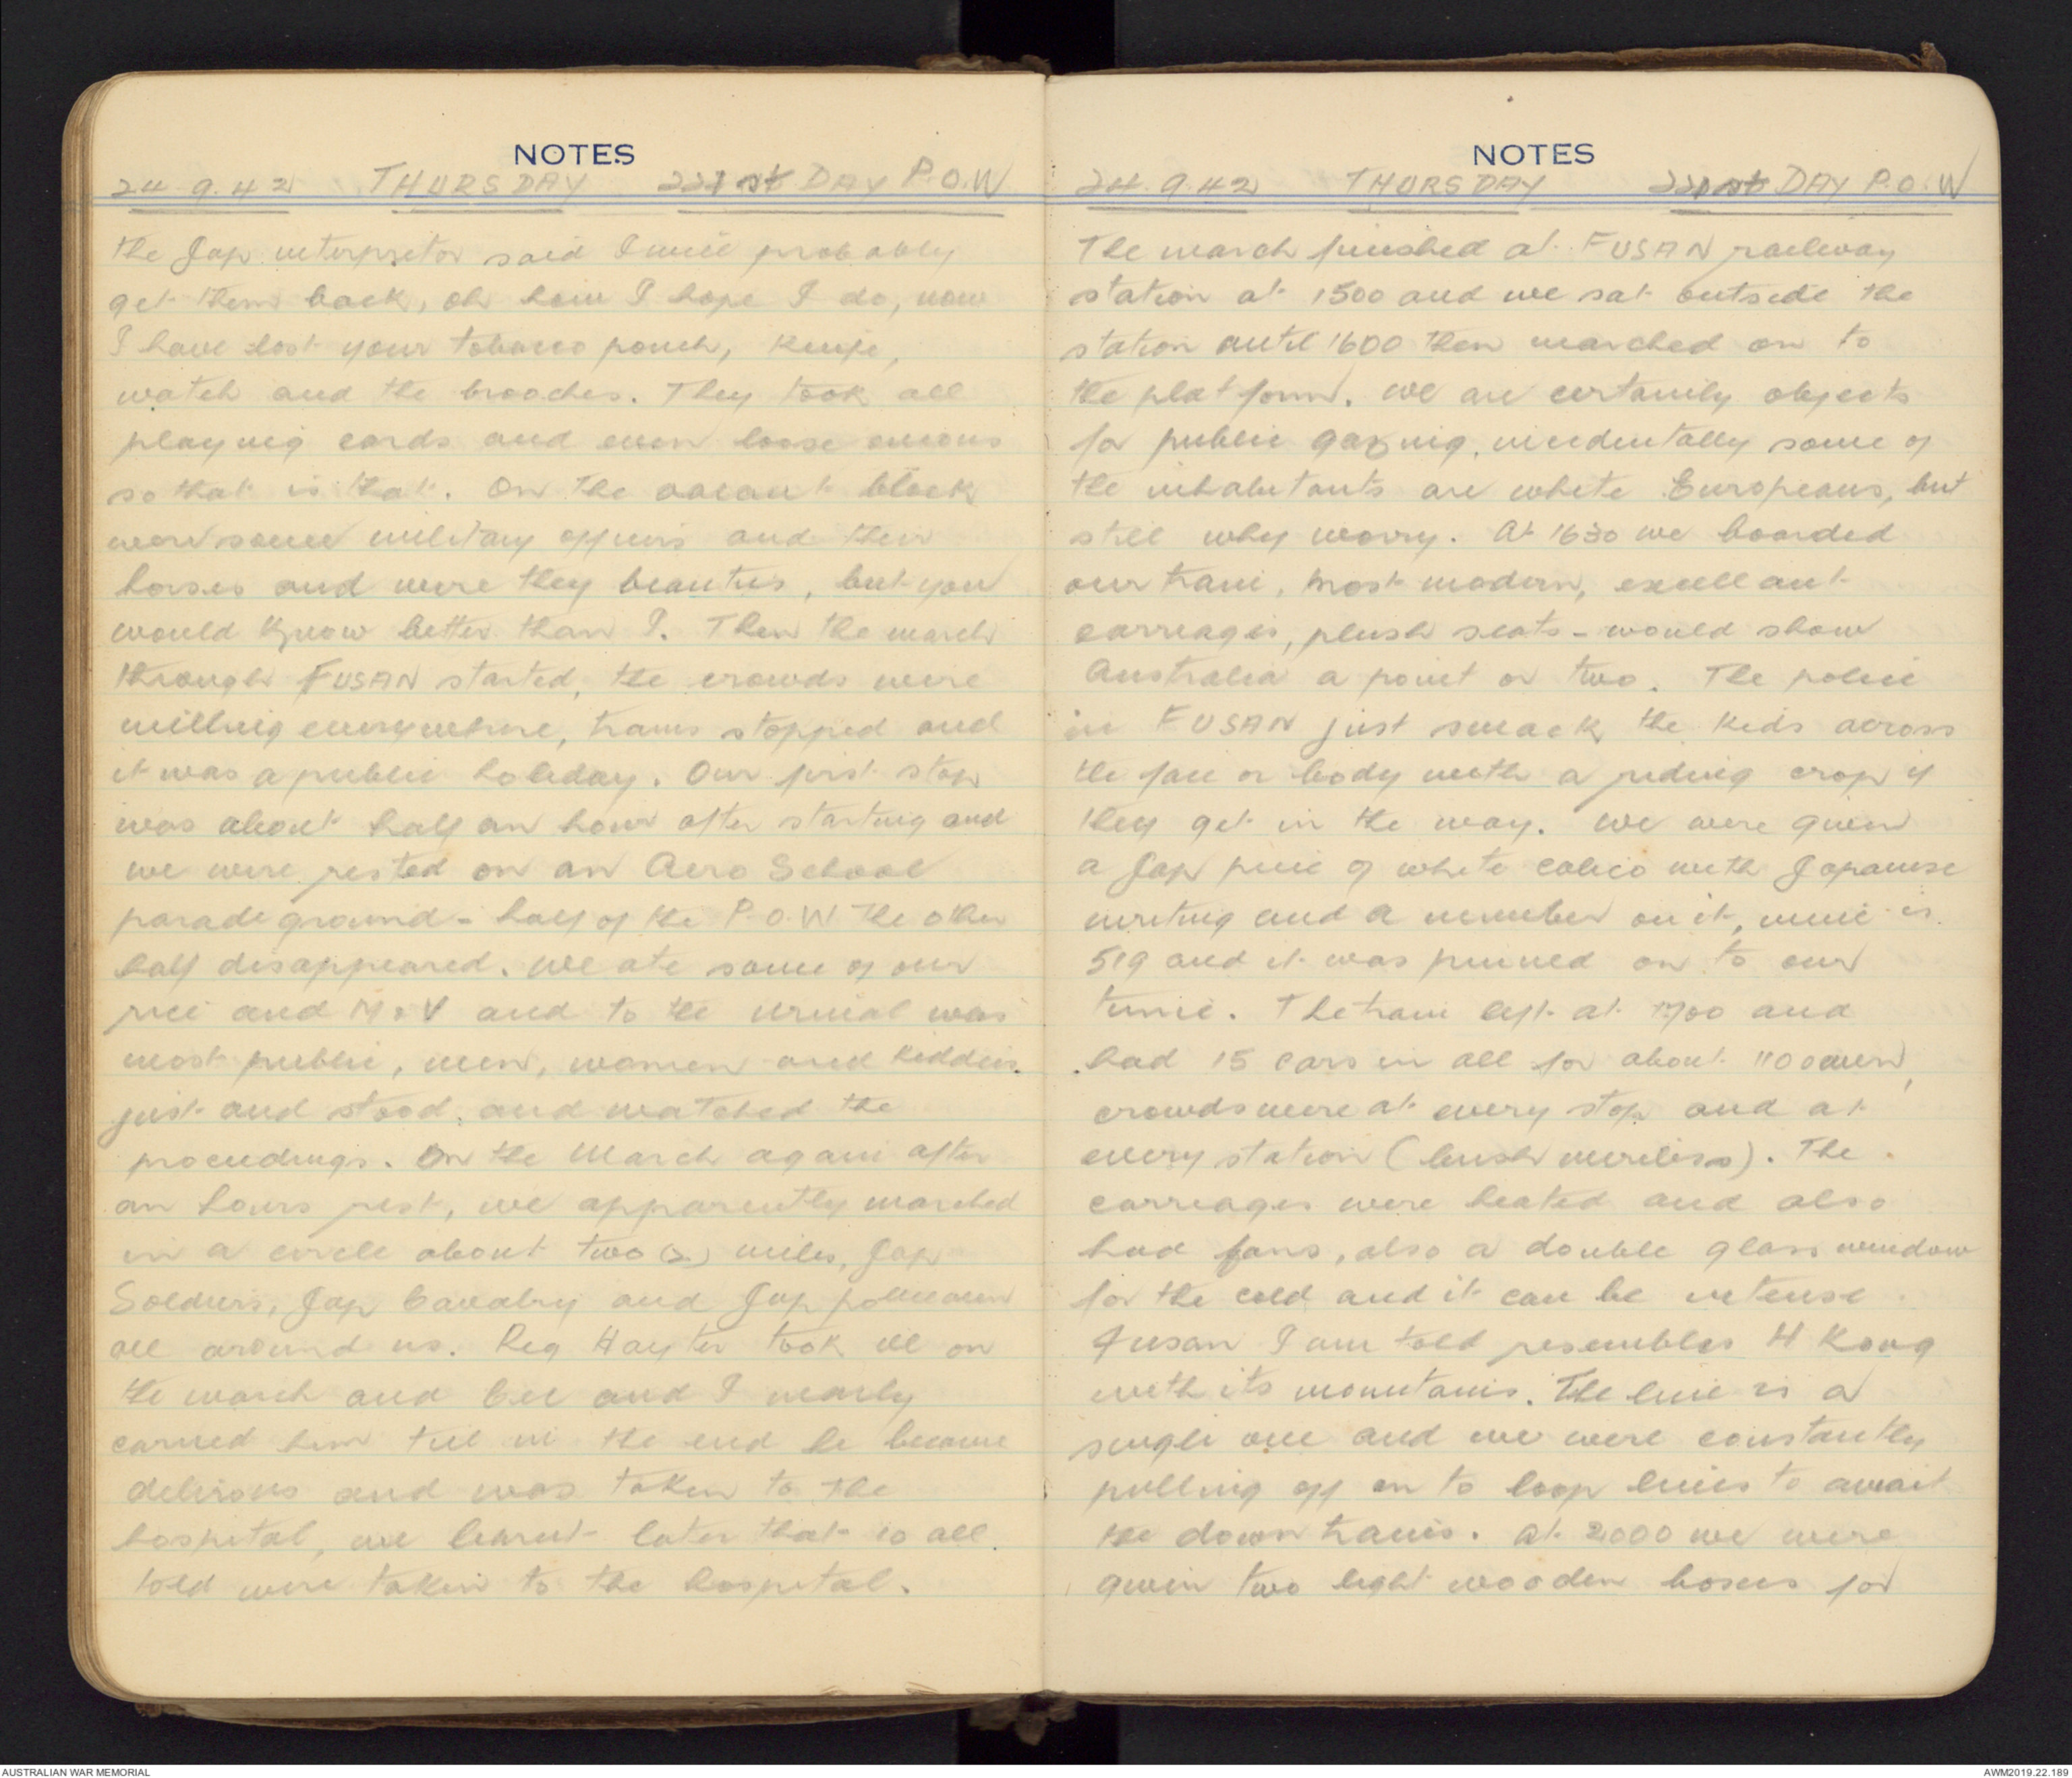 NOTES
24.9.42 THURSDAY 221st DAY P.O.W
the Jap interpretor said I will probably
get them back, oh how I hope I do, now
I have lost your tobacco pouch, knife,
watch and the brooches. They took all
playing cards and even loose onions
so that is that. On the vacant block
were some military officers and their
horses and were they beauties, but you
would know better than I. Then the march
through FUSAN started, the crowds were
milling everywhere, trams stopped and
it was a public holiday. Our first stop
was about half an hour after starting and
we were rested on an Aero School
parade ground - half of the P.O.W the other
half disappeared. We ate some of our
rice and M & V and to the urinal was
most public, men, women and kiddies
just and stood, and watched the
proceedings. On the March again after
an hours rest, we apparently marched
in a circle about two (2) miles, Jap
Soldiers, Jap Cavalry and Jap policemen
all around us. Reg Hayter took ill on
the march and and I nearly
carried him till in the end he became
delirious and was taken to the
hospital, we learnt later that 10 all
told were taken to the hospital.
NOTES
24.9.42 THURSDAY 221st DAY P.O.W
The march finished at FUSAN railway
station at 1500 and we sat outside the
station until 1600 then marched on to
the platform. We are certainly objects
for public gazing, incidentally some of
the inhabitants are white Europeans, but
still why worry. At 1630 we boarded
our train, most modern, excellant
carriages, plush seats - would show
Australia a point or two. The police
in FUSAN just smack the kids across
the face or body with a riding crop if
they get in the way. We were given
a Jap piece of white calico with Japanese
writing and a number on it, mine is
519 and it was pinned on to our
tunic. The train left at 1700 and
had 15 cars in all for about 1100 men,
crowds were at every stop and at
every station (bush wireless). The
carriages were heated and also
had fans, also a double glass window
for the cold and it can be intense.
Fusan I am told resembles H Kong
with its mountains. The line is a
single one and we were constantly
pulling off on to loop lines to await
the down trains. At 2000 we were
given two light wooden boxes for
AUSTRALIAN WAR MEMORIAL
AWM2019.22.189